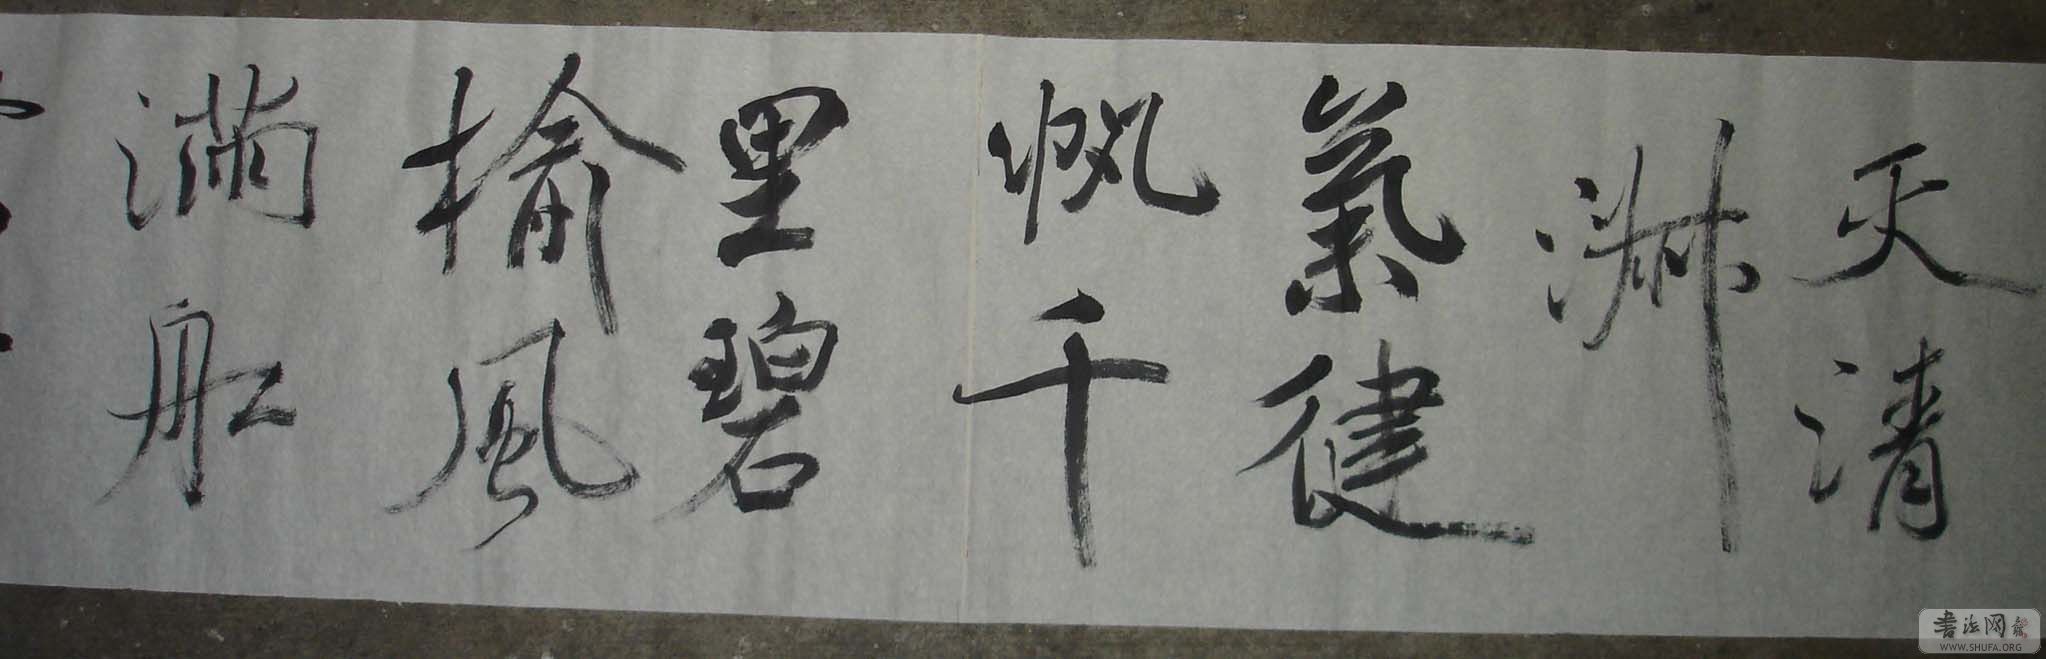 天清
淑
氣健
帆千
里碧
榆風
滿舡
書法网
WWW.SHUFA.ORG